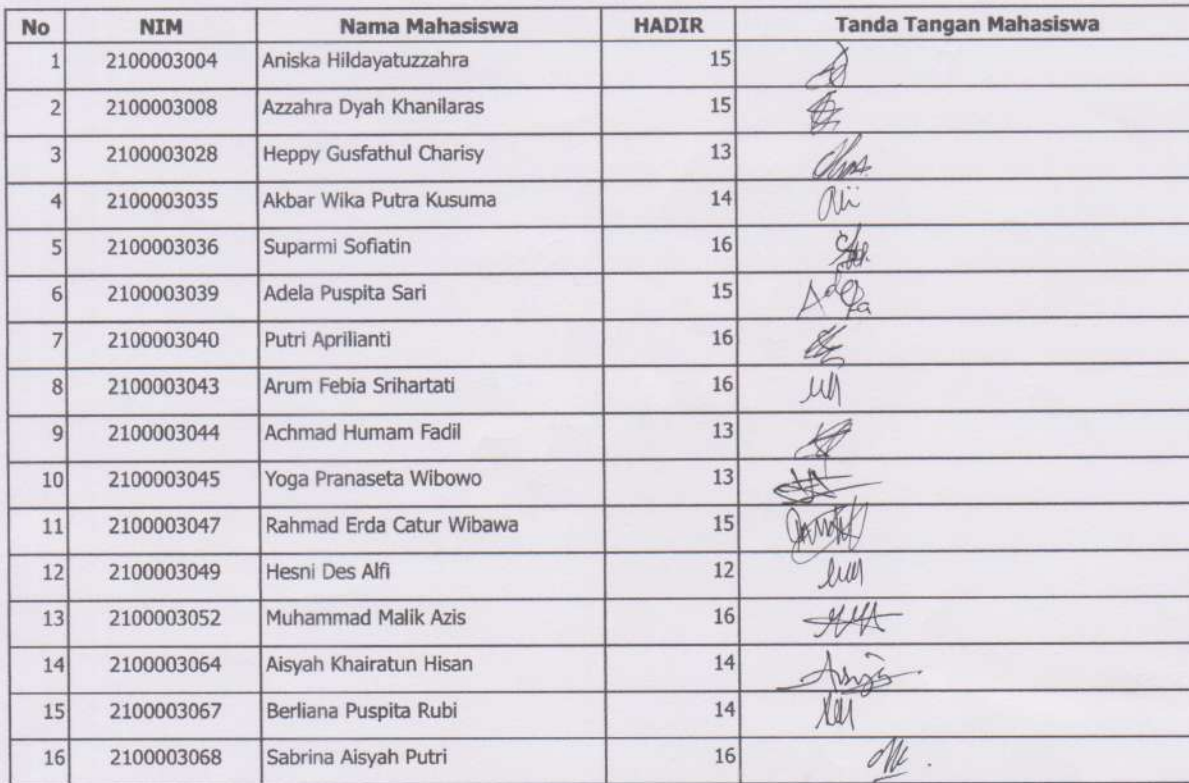 No NIM Nama Mahasiswa HADIR Tanda Tangan Mahasiswa
1 2100003004 Aniska Hildayatuzzahra 15
2 2100003008 Azzahra Dyah Khanilaras 15
3 2100003028 Heppy Gusfathul Charisy 13
4 2100003035 Akbar Wika Putra Kusuma 14
5 2100003036 Suparmi Sofiatin 16
6 2100003039 Adela Puspita Sari 15
7 2100003040 Putri Aprilianti 16
8 2100003043 Arum Febia Srihartati 16
9 2100003044 Achmad Humam Fadil 13
10 2100003045 Yoga Pranaseta Wibowo 13
11 2100003047 Rahmad Erda Catur Wibawa 15
12 2100003049 Hesni Des Alfi 12
13 2100003052 Muhammad Malik Azis 16
14 2100003064 Aisyah Khairatun Hisan 14
15 2100003067 Berliana Puspita Rubi 14
16 2100003068 Sabrina Aisyah Putri 16